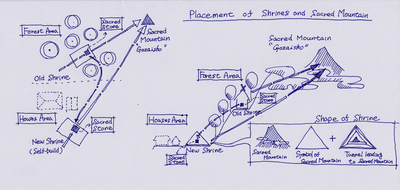 Placement of Shrines and Sacred Mountain
Forest Area
Sacred
Stone
Sacred
Mountain
"Gozaisho"
Old Shrine
Houses Area
Sacred
Stone
New Shrine
(Self-build)
Sacred Mountain
"Gozaisho"
Forest Area
Sacred
Stone
Old Shrine
Houses Area
New Shrine
Sacred
Stone
Shape of Shrine
Sacred
Mountain
Symbol of
Sacred Mountain
+
Tunnel leading
to Sacred Mountain